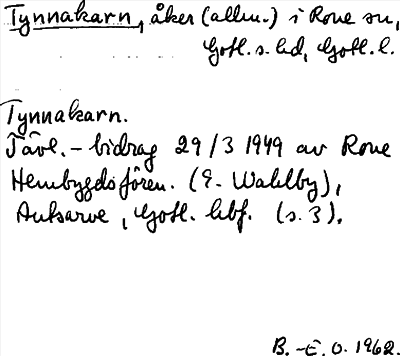 Tynnakarn, åker (allm.) i Rone sn,
Gotl. s. hd, Gotl. l.
Tynnakarn.
Tävl.-bidrag 29/3 1949 av Rone
Hembygdsfören. (E. Wahlby),
Autsarve, Gotl. hbf. (s. 3).
B.-E. O. 1962.